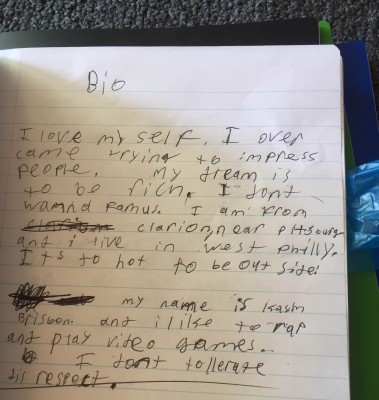 Bio
I love my self. I over
came trying to impress
people. My dream is
to be rich. I dont
wannd famus. I am from
clarion near pitsourg
and i live in west philly.
Its to hot to be out side.
my name is kash
Brisbon. and i like to rap
and play video games.
I dont tollerate
dis respect.